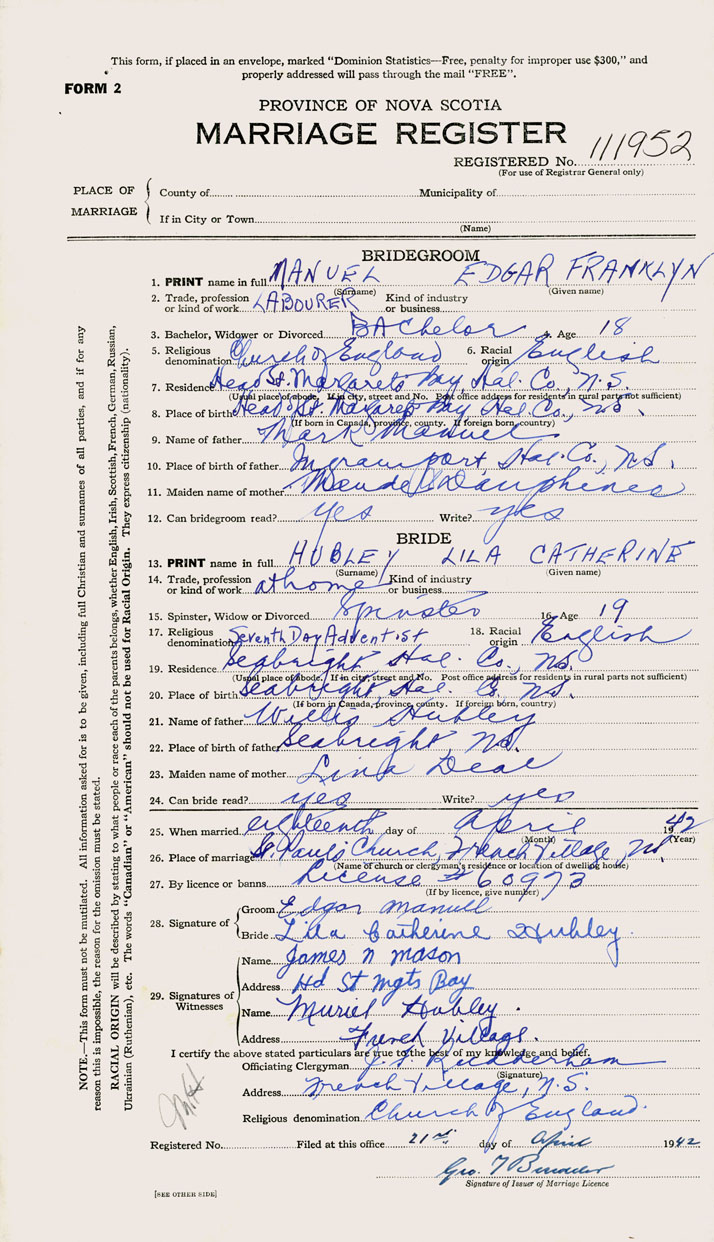 This form, if placed in an envelope, marked "Dominion Statistics—Free, penalty for improper use $300," and
properly addressed will pass through the mail "FREE".
FORM 2
PROVINCE OF NOVA SCOTIA
MARRIAGE REGISTER
REGISTERED No. 111952
(For use of Registrar General only)
PLACE OF MARRIAGE
County of Municipality of
If in City or Town
(Name)
BRIDEGROOM
1. PRINT name in full MANUEL EDGAR FRANKLYN
(Surname) (Given name)
2. Trade, profession or kind of work LABOURER Kind of industry or business
3. Bachelor, Widower or Divorced BAchelor 4. Age 18
5. Religious denomination Church of England 6. Racial origin English
7. Residence Head St. Margarets Bay, Hal. Co., N.S.
(Usual place of abode. If in city, street and No. Post office address for residents in rural parts not sufficient)
8. Place of birth Head St. Margarets Bay Hal. Co., N.S.
(If born in Canada, province, county. If foreign born, country)
9. Name of father Mark Manuel
10. Place of birth of father Ingramport, Hal. Co., N.S.
11. Maiden name of mother Maude Dauphinee
12. Can bridegroom read? yes Write? yes
BRIDE
13. PRINT name in full HUBLEY LILA CATHERINE
(Surname) (Given name)
14. Trade, profession or kind of work at home Kind of industry or business
15. Spinster, Widow or Divorced Spinster 16. Age 19
17. Religious denomination Seventh Day Adventist 18. Racial origin English
19. Residence Seabright Hal. Co., N.S.
(Usual place of abode. If in city, street and No. Post office address for residents in rural parts not sufficient)
20. Place of birth Seabright, Hal. Co. N.S.
(If born in Canada, province, county. If foreign born, country)
21. Name of father Willis Hubley
22. Place of birth of father Seabright, N.S.
23. Maiden name of mother Lina Deal
24. Can bride read? yes Write? yes
25. When married eighteenth day of April 1942
(Month) (Year)
26. Place of marriage St. Paul's Church, French Village, N.S.
(Name of church or clergyman's residence or location of dwelling house)
27. By licence or banns License # 60973
(If by licence, give number)
28. Signature of
Groom Edgar Manuel
Bride Lila Catherine Hubley.
29. Signatures of Witnesses
Name James N Mason
Address Hd St Mgts Bay
Name Muriel Hubley.
Address French Village.
I certify the above stated particulars are true to the best of my knowledge and belief.
Officiating Clergyman
(Signature)
Address French Village, N.S.
Religious denomination Church of England.
Registered No. Filed at this office 21st day of April 1942
Geo. T
Signature of Issuer of Marriage Licence
[SEE OTHER SIDE]
NOTE.—This form must not be mutilated. All information asked for is to be given, including full Christian and surnames of all parties, and if for any
reason this is impossible, the reason for the omission must be stated.
RACIAL ORIGIN will be described by stating to what people or race each of the parents belongs, whether English, Irish, Scottish, French, German, Russian,
Ukrainian (Ruthenian), etc. The words "Canadian" or "American" should not be used for Racial Origin. They express citizenship (nationality).